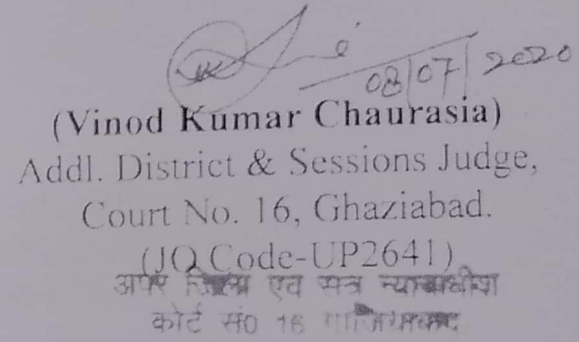 08/07/2020
(Vinod Kumar Chaurasia)
Addl. District & Sessions Judge,
Court No. 16, Ghaziabad.
(JO Code-UP2641)
अपर जिला एवं सत्र न्यायाधीश
कोर्ट सं0 16 गाजियाबाद